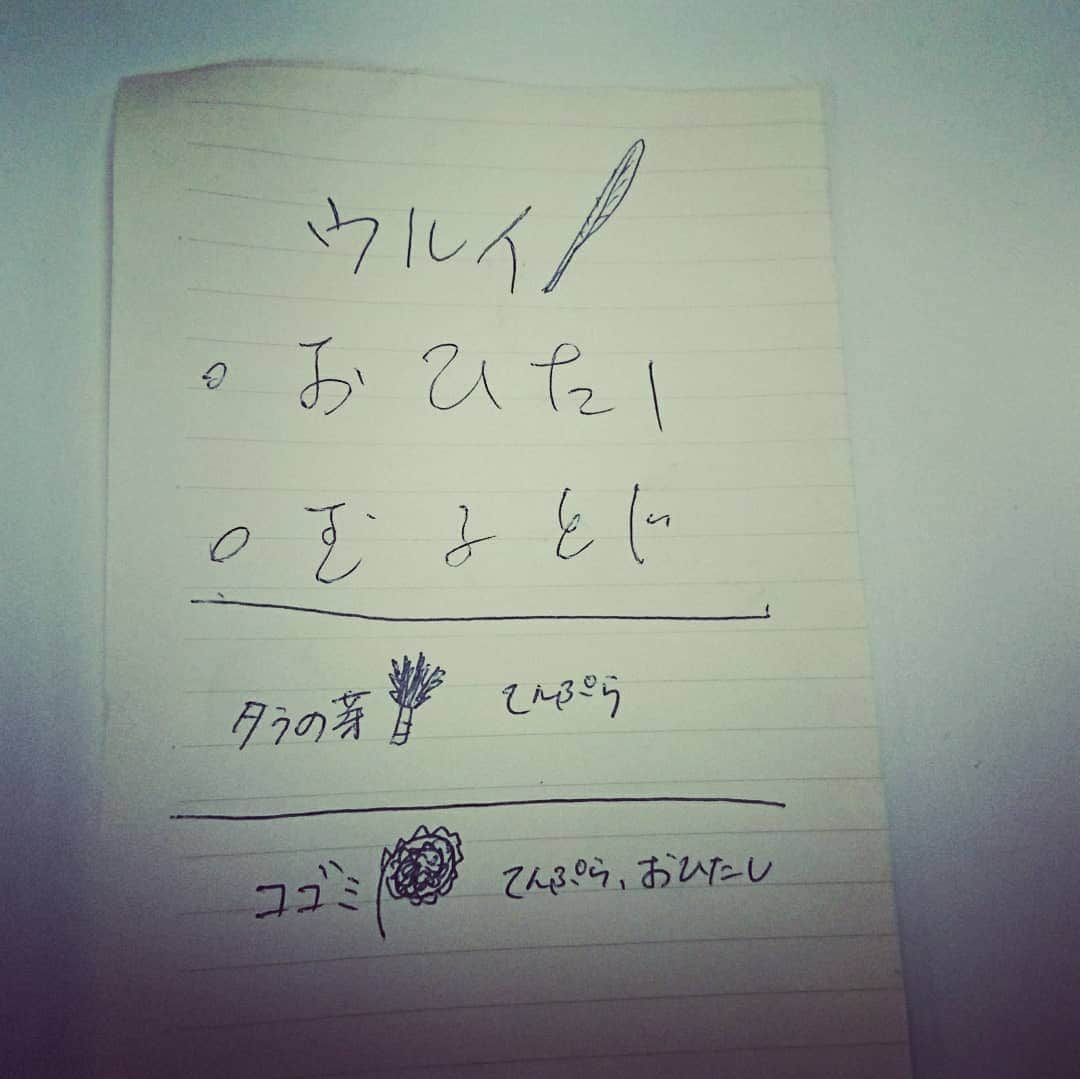 ウルイ
○ おひたし
○ 玉子とじ
タラの芽 てんぷら
コゴミ てんぷら、おひたし